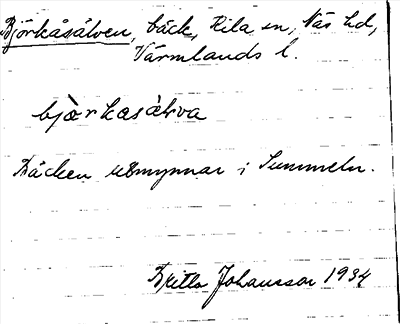 Björkåsälven, bäck, Kila sn, Näs hd,
Värmlands l.
bjὼrkasὰlva
Bäcken utmynnar i Summeln.
Britta Johansson 1934